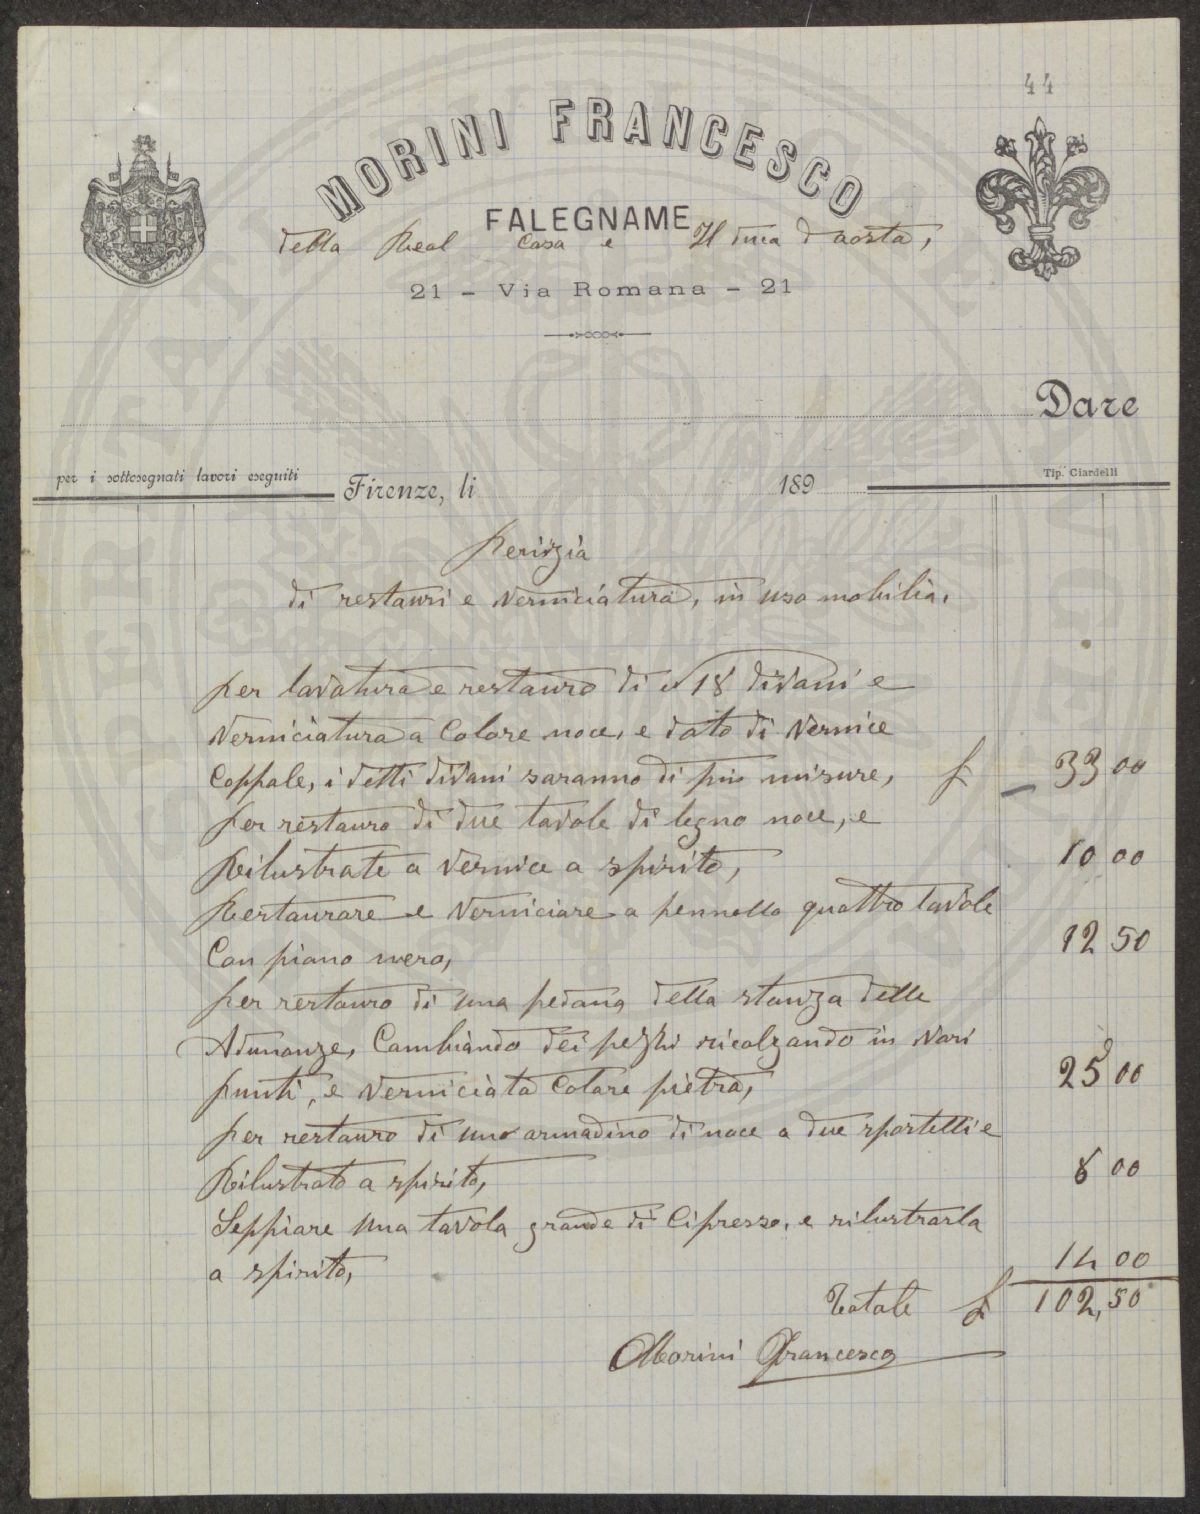 44
MORINI FRANCESCO
FALEGNAME
della Real Casa e Il duca d'aosta,
21 - Via Romana - 21
Dare
per i sottosegnati lavori eseguiti
Firenze, li 189
Tip. Ciardelli
Perizia
di restauri e verniciatura, in uso mobilia,
per lavatura e restauro di n 18 divani e
verniciatura a Colore noce, e dato di vernice
Coppale, i detti divani saranno di più misure, £ 33 00
per restauro di due tavole di legno noce, e
Rilustrate a vernice a spirito, 10 00
Restaurare e verniciare a pennello quattro tavole
Con piano nero, 12 50
per restauro di una pedana della stanza delle
Adunanze, Cambiando dei pezzi ricalzando in vari
punti, e verniciata Colore pietra, 25 00
per restauro di uno armadino di noce a due sportelli e
Rilustrato a spirito, 8 00
Seppiare una tavola grande di Cipresso, e rilustrarla
a spirito, 14 00
Totale £ 102,50
Morini Francesco